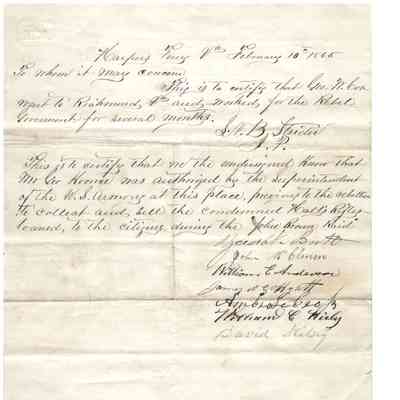 Harpers Ferry Va February 10th 1865
To whom it may concern
This is to certify that Geo. W. Cox
went to Richmond, Va and, worked, for the Rebel
Government for several months.
J. P.
This is to certify that we the undersigned know that
Mr Geo was authorized by the Superintendent
of the U.S. Armory at this place, previous to the rebellion
to collect and, sell the condemned Hall's Rifles
loaned, to the citizens during the John Brown Raid
Booth
John
William E Anderson
James
William C Kirby
David